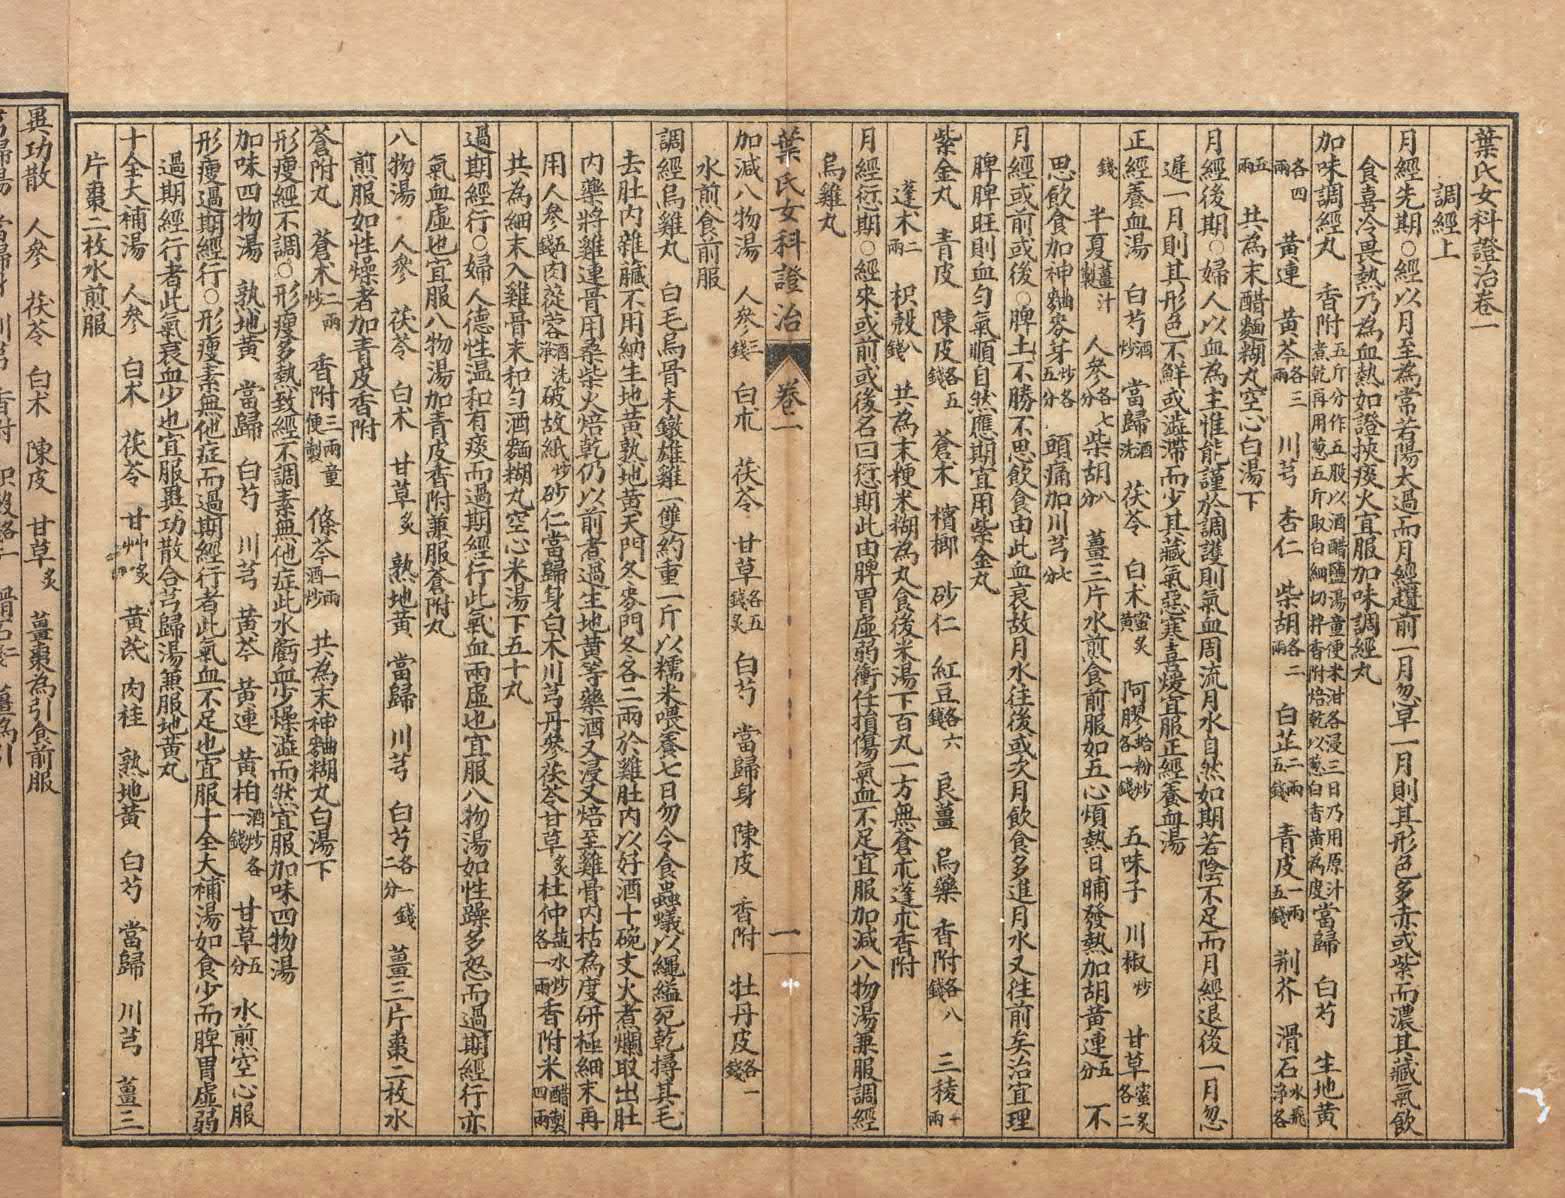 葉氏女科證治卷一
調經上
月經先期○經以月至為常若陽太過而月經趲前一月忽早一月則其形色多赤或紫而濃其藏氣飲
食喜冷畏熱乃為血熱如證挾痰火宜服加味調經丸
加味調經丸 香附五斤分作五股以酒醋鹽湯童便米泔各浸三日乃用原汁煮乾再用葱五斤取白細切拌香附焙乾以葱白香黃為度當歸 白芍 生地黃
各四兩 黃連 黃芩各三兩 川芎 杏仁 柴胡各二兩 白芷二兩五錢 青皮一兩五錢 荆芥 滑石水飛淨各
五兩 共為末醋麵糊丸空心白湯下
月經後期○婦人以血為主惟能謹於調護則氣血周流月水自然如期若陰不足而月經退後一月忽
遲一月則其形色不鮮或澁滯而少其藏氣惡寒喜煖宜服正經養血湯
正經養血湯 白芍酒炒 當歸酒洗 茯苓 白术蜜炙黃 阿膠蛤粉炒各一錢 五味子 川椒炒 甘草蜜炙各二
錢 半夏薑汁製 人參各七分 柴胡八分 薑三片水煎食前服如五心煩熱日晡發熱加胡黃連五分 不
思飲食加神麯麥芽炒各五分 頭痛加川芎七分
月經或前或後○脾土不勝不思飲食由此血衰故月水往後或次月飲食多進月水又往前矣治宜理
脾脾旺則血勻氣順自然應期宜用紫金丸
紫金丸 青皮 陳皮各五錢 蒼术 檳榔 砂仁 紅豆各六錢 良薑 烏藥 香附各八錢 三稜一兩
蓬术二兩 枳殼八錢 共為末粳米糊為丸食後米湯下百丸一方無蒼朮蓬朮香附
月經愆期○經來或前或後名曰愆期此由脾胃虛弱衝任損傷氣血不足宜服加減八物湯兼服調經
烏雞丸
葉氏女科證治 卷一 一
加減八物湯 人參三錢 白朮 茯苓 甘草各五錢炙 白芍 當歸身 陳皮 香附 牡丹皮各一錢
水煎食前服
調經烏雞丸 白毛烏骨未鐓雄雞一雙約重一斤以糯米喂養七日勿令食蟲蟻以繩縊死乾撏其毛
去肚內雜臟不用納生地黃熟地黃天門冬麥門冬各二兩於雞肚內以好酒十碗文火煮爛取出肚
內藥將雞連骨用桑柴火焙乾仍以前煮過生地黃等藥酒又浸又焙至雞骨肉枯為度研極細末再
用人參五錢肉蓯蓉酒洗淨破故紙炒砂仁當歸身白术川芎丹參茯苓甘草炙杜仲鹽水炒各一兩香附米醋製四兩
共為細末入雞骨末和勻酒麵糊丸空心米湯下五十丸
過期經行○婦人德性温和有痰而過期經行此氣血兩虛也宜服八物湯如性躁多怒而過期經行亦
氣血虛也宜服八物湯加青皮香附兼服蒼附丸
八物湯 人參 茯苓 白术 甘草炙 熟地黃 當歸 川芎 白芍各一錢二分 薑三片棗二枚水
煎服如性燥者加青皮香附
蒼附丸 蒼术二兩炒 香附三兩童便製 條芩一兩酒炒 共為末神麯糊丸白湯下
形瘦經不調○形瘦多熱致經不調素無他症此水虧血少燥澁而然宜服加味四物湯
加味四物湯 熟地黃 當歸 白芍 川芎 黃芩 黃連 黃柏酒炒各一錢 甘草五分 水煎空心服
形瘦過期經行○形瘦素無他症而過期經行者此氣血不足也宜服十全大補湯如食少而脾胃虛弱
過期經行者此氣衰血少也宜服異功散合芎歸湯兼服地黃丸
十全大補湯 人參 白术 茯苓 甘艸炙 黃芪 肉桂 熟地黃 白芍 當歸 川芎 薑三
片棗二枚水煎服
異功散 人參 茯苓 白术 陳皮 甘草炙 薑棗為引食前服